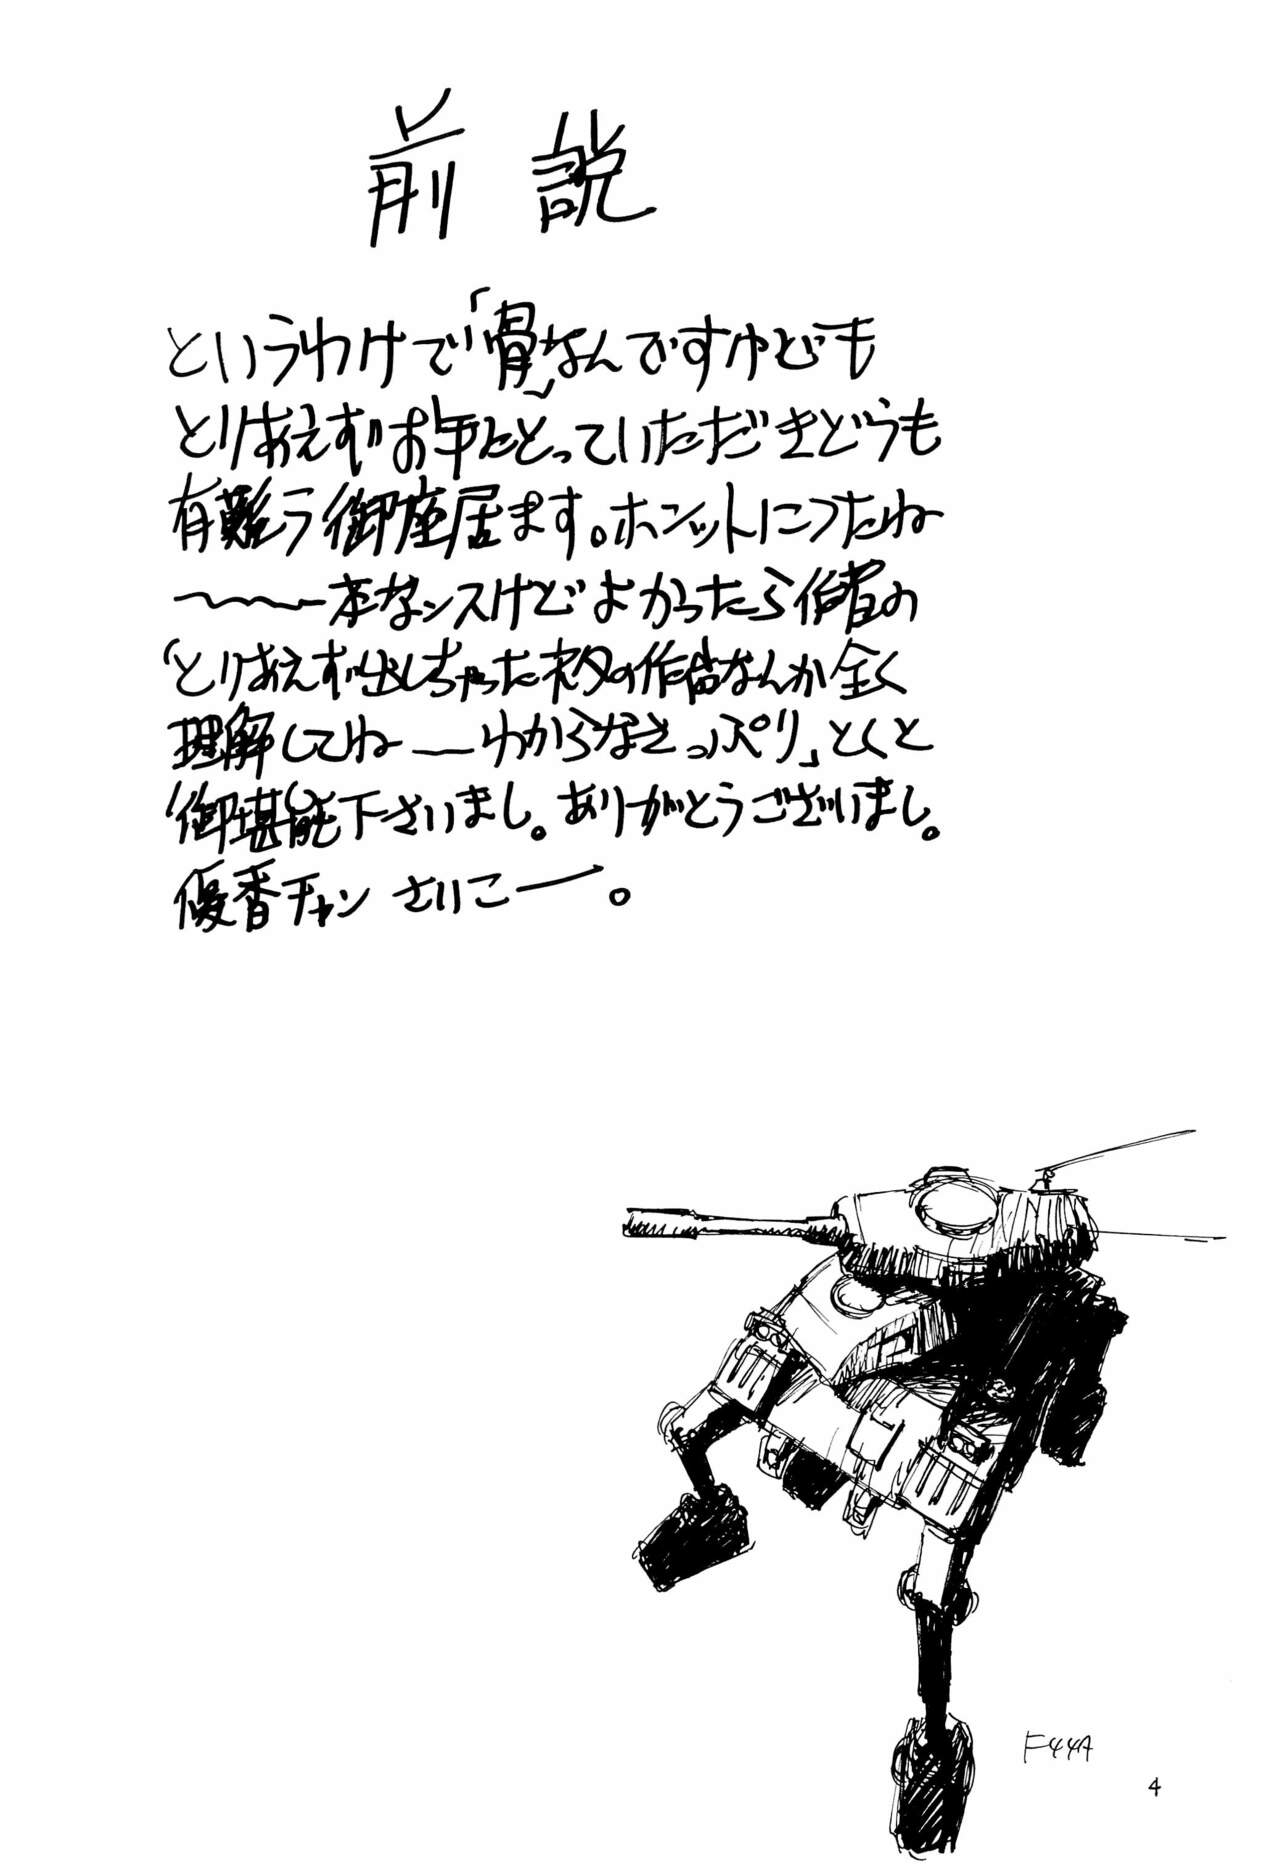 前説
というわけで「骨」なんですけども
とりあえずお手にとっていただきどうも
有難う御座居ます。ホンットにつたね
〜〜〜本なンスけどよかったら作者の
「とりあえず出しちゃったネタの作品なんか全く
理解してねーわからなさっぷり」とくと
御堪能下さいまし。ありがとうございまし。
優香チャン さいこー。
F44A
4